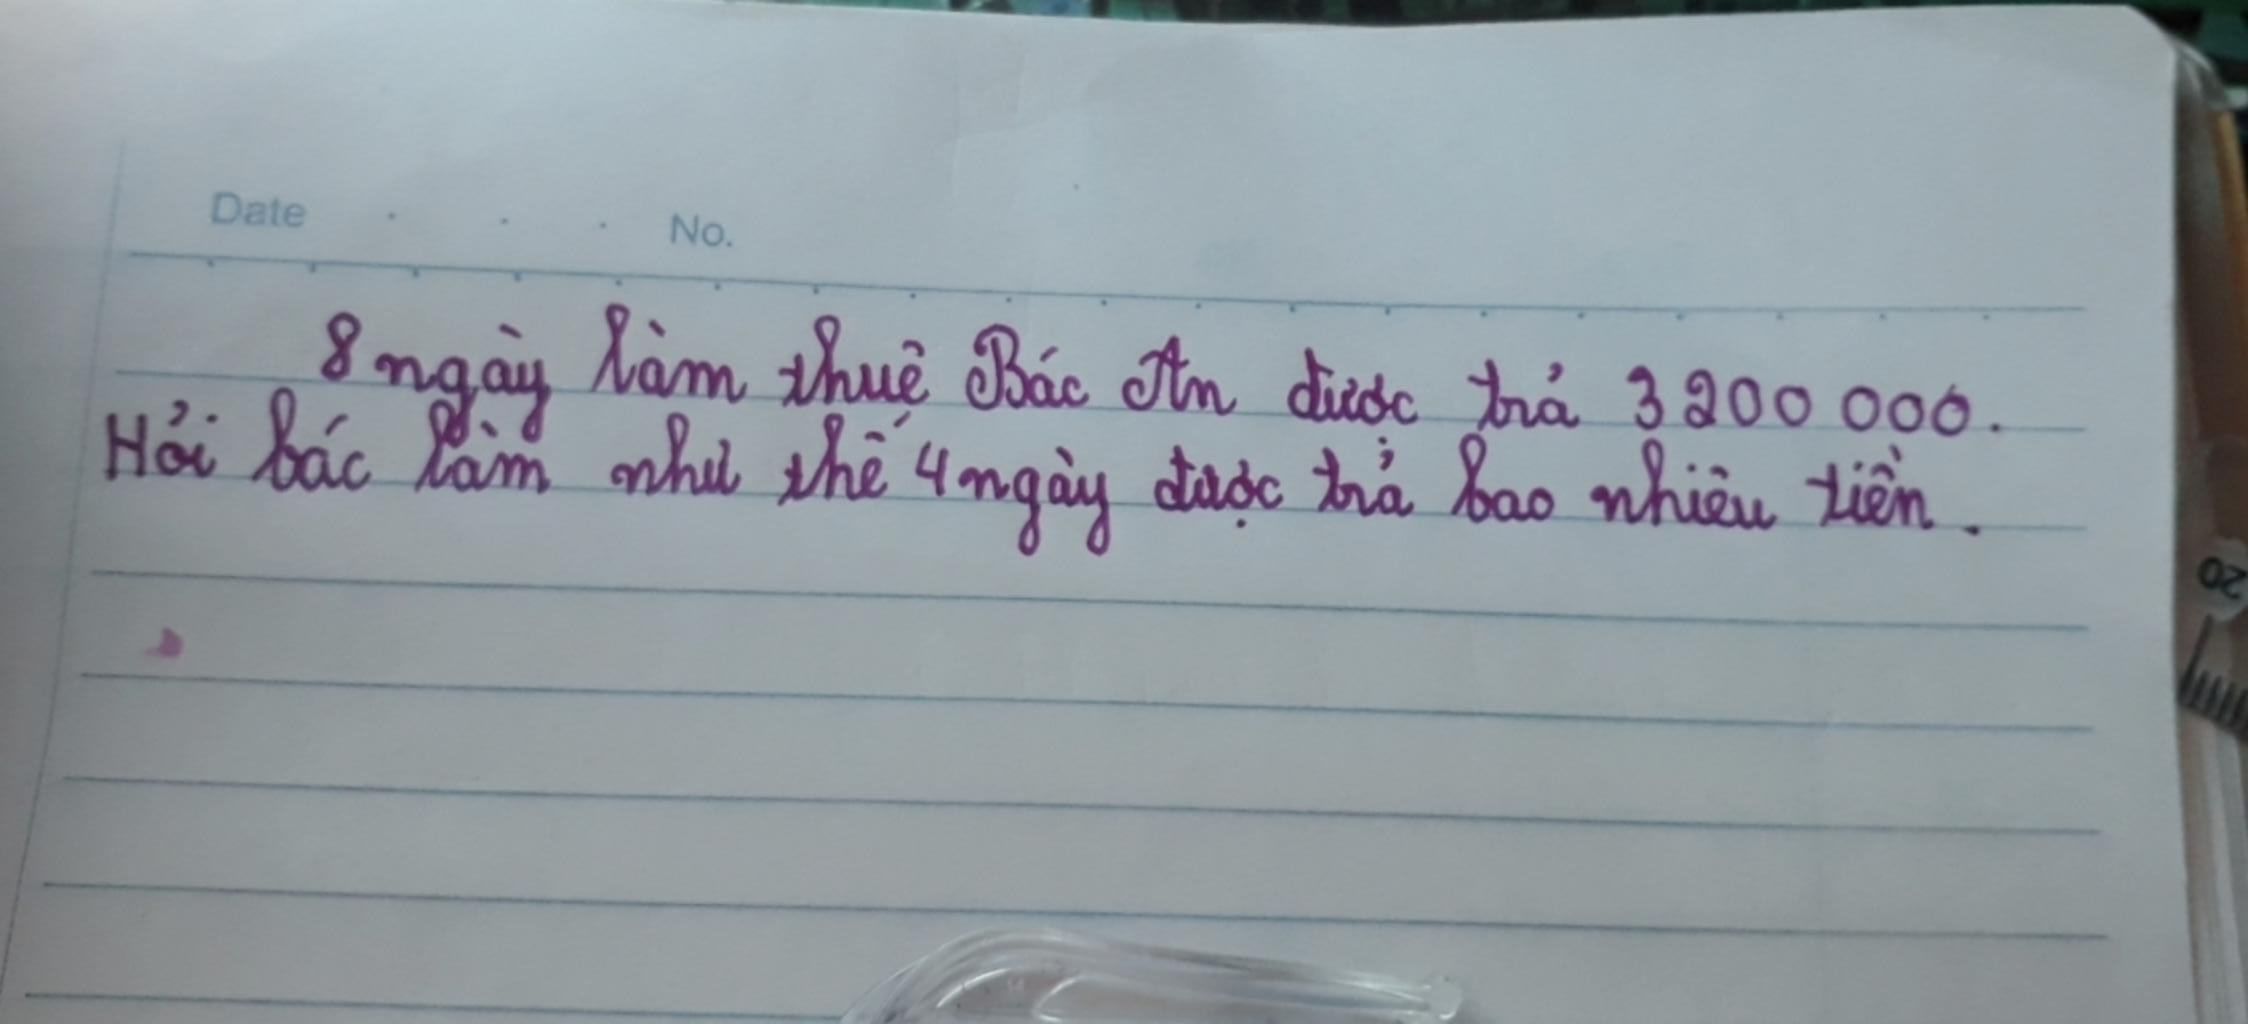 Date No.
8 ngày làm thuê Bác An được trả 3 200 000.
Hỏi bác làm như thế 4 ngày được trả bao nhiêu tiền.
20